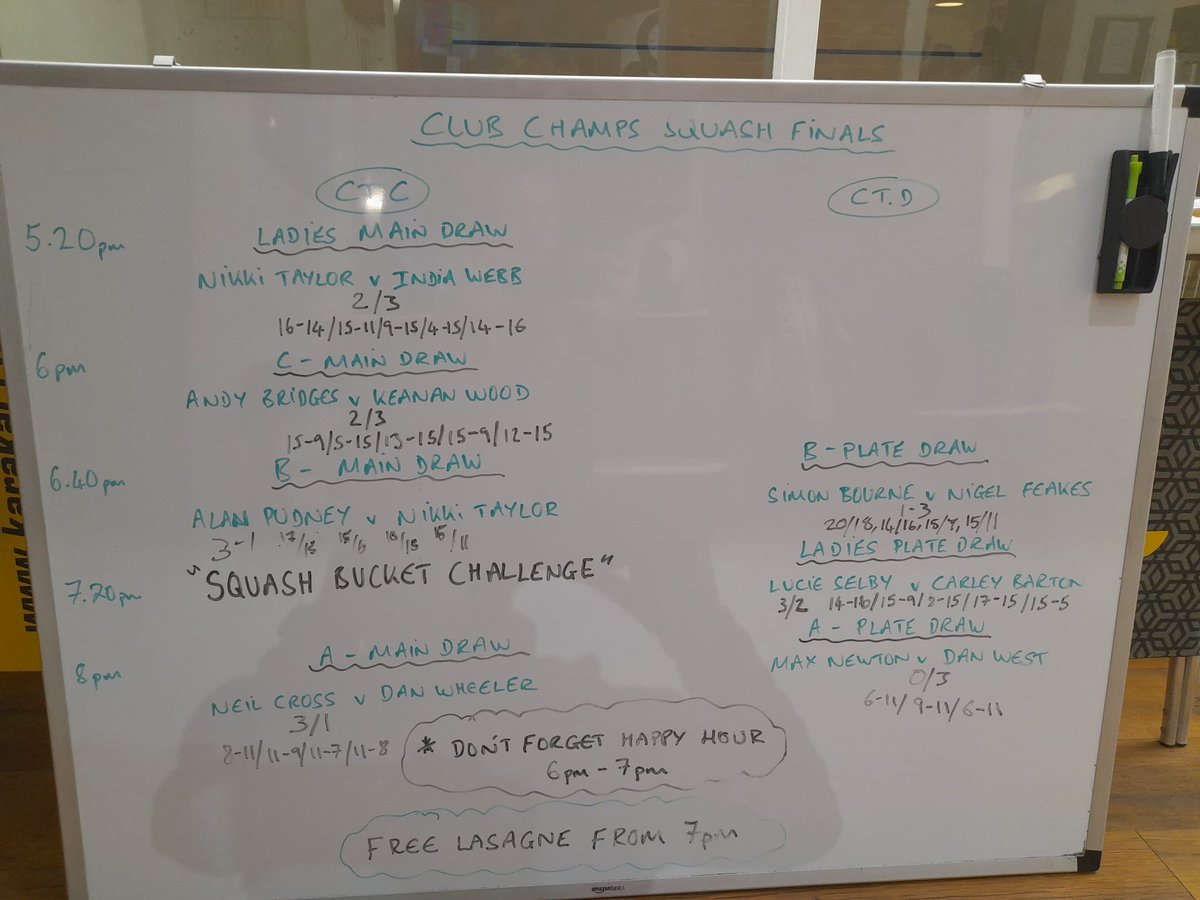 CLUB CHAMPS SQUASH FINALS
CT. C
CT. D
5.20pm
LADIES MAIN DRAW
NIKKI TAYLOR v INDIA WEBB
2/3
16-14/15-11/9-15/4-15/14-16
6pm
C - MAIN DRAW
ANDY BRIDGES v KEANAN WOOD
2/3
15-9/5-15/13-15/15-9/12-15
6.40pm
B - MAIN DRAW
ALAN PUDNEY v NIKKI TAYLOR
3-1
15/11
B - PLATE DRAW
SIMON BOURNE v NIGEL FEAKES
1-3
20/18, 14/16, 15/7, 15/11
7.20pm
"SQUASH BUCKET CHALLENGE"
LADIES PLATE DRAW
LUCIE SELBY v CARLEY BARTON
3/2 14-16/15-9/8-15/17-15/15-5
8pm
A - MAIN DRAW
NEIL CROSS v DAN WHEELER
3/1
8-11/11-9/11-7/11-8
A - PLATE DRAW
MAX NEWTON v DAN WEST
0/3
6-11/9-11/6-11
* DON'T FORGET HAPPY HOUR
6pm - 7pm
FREE LASAGNE FROM 7pm
amazonbasics
www.karakal